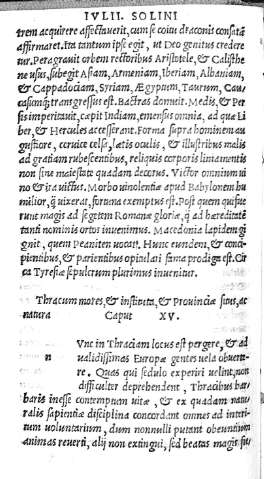 IVLII. SOLINI
trem acquirere affectauerit, cum se coitu draconis consatā
affirmaret. Ita tantum ipse egit, ut Deo genitus credere
tur. Peragrauit orbem rectoribus Aristotele, & Calisthe
ne usus, subegit Asiam, Armeniam, Iberiam, Albaniam,
& Cappadociam, Syriam, Ægyptum, Taurum, Cau-
casumq; transgressus est. Bactros domuit. Medis, & Per
sis imperitauit, cœpit Indiam, emensus omnia, ad quæ Li
ber, & Hercules accesserant. Forma supra hominem au
gustiore, ceruice celsa, lætis oculis, & illustribus malis
ad gratiam rubescentibus, reliquis corporis liniamentis
non sine maiestate quadam decorus. Victor omnium ui
no & ira uictus. Morbo uinolentiæ apud Babylonem hu
milior, q̃ uixerat, fortuna exemptus est. Post quem quifue
runt magis ad segetem Romanæ gloriæ, q̃ ad hæreditatē
tanti nominis ortos inuenimus. Macedonia lapidem gi
gnit, quem Pæaniten uocāt. Hunc eundem, & conci-
pientibus, & parientibus opitulari fama prodiga est. Cir
ca Tyresiæ sepulcrum plurimus inuenitur.
Thracum mores, & instituta, & Prouinciæ situs, ac
natura Caput XV.
Vnc in Thraciam locus est pergere, & ad
n ualidissimas Europæ gentes uela obuerte
re. Quas qui sedulo experiri uelint, non
difficulter deprehendent, Thracibus bar
baris inesse contemptum uitæ, & ex quadam natu
ralis sapientiæ disciplina concordant omnes ad interi
tum uoluntarium, dum nonnulli putant obeuntium
animas reuerti, alij non extingui, sed beatas magis fie